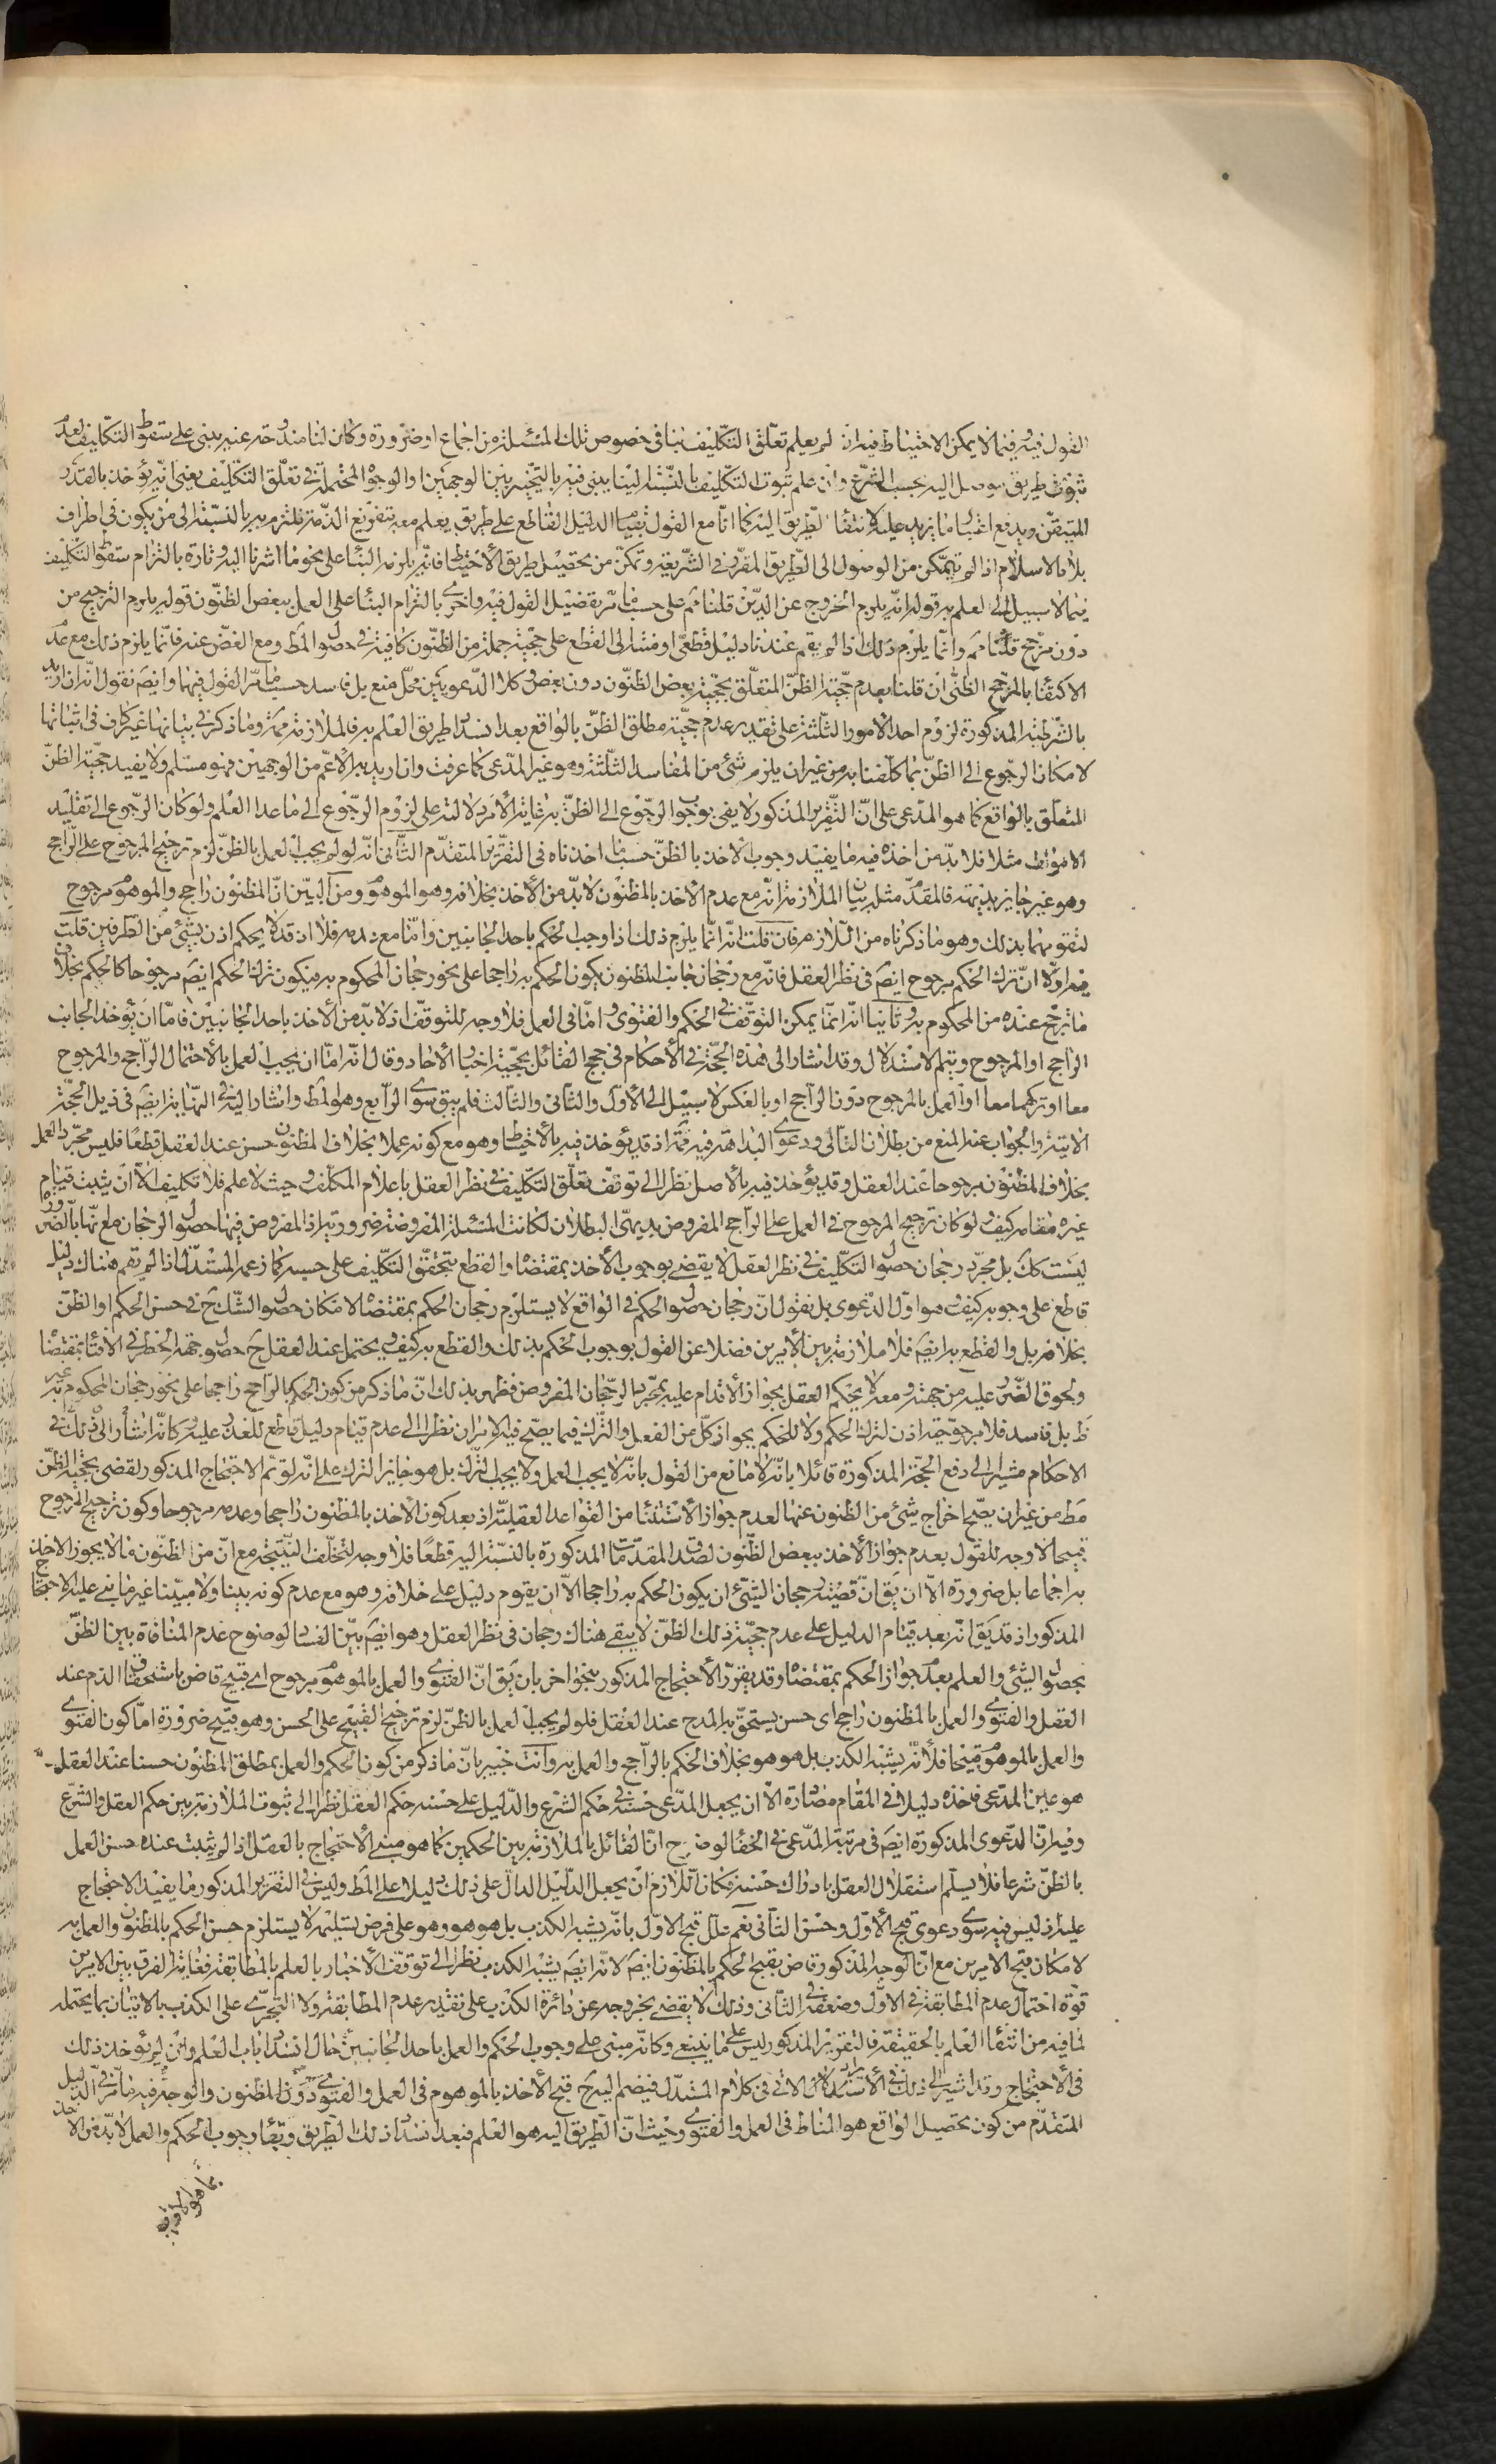 القول فيه فيما لا يمكن الاحتياط فيه ان لم يعلم تعلّق التكليف بنا في خصوص تلك المسئلة من اجماع او ضرورة وكان لنا مندوحة عنه يبنى على سقوط التكليف لعدم
ثبوت طريق موصل اليه بحسب الشرع وان علم ثبوت التكليف بالنسبة الينا يبنى فيه بالتخيير بين الوجهين او الوجوه المحتملة في تعلّق التكليف يعنى انّه يؤخذ بالقدر
المتيقّن ويدفع اعتبار ما يزيد عليه لانتفاء الطريق اليه كما انّا مع القول بقيام الدليل القاطع على طريق يعلم معه بتفريغ الذمّة نلتزم به بالنسبة الى من يكون في اطراف
بلاد الاسلام اذا لم يتمكّن من الوصول الى الطريق المقرّر في الشريعة وتمكّن من تحصيل طريق الاحتياط فانّه يلزمه البناء على نحو ما اشرنا اليه وتارة بالتزام سقوط التكليف
فيما لا سبيل الى العلم به قوله انّه يلزم الخروج عن الدّين قلنا مم على حسب ما مرّ تفصيل القول فيه واخرى بالتزام البناء على العمل ببعض الظنون قوله يلزم الترجيح من
دون مرجّح قلنا مم وانّما يلزم ذلك اذا لم يقم عندنا دليل قطعىّ او منته الى القطع على حجّية جملة من الظنون كافية في حصول المط ومع الغضّ عنه فانّما يلزم ذلك مع عدم
الاكتفاء بالمرجّح الظنّى ان قلنا بعدم حجّية الظنّ المتعلّق بحجّية بعض الظنون دون بعض وكلا الدّعويين محلّ منع بل فاسد حسب ما مرّ القول فيها وايضا نقول انّه ان اريد
بالشرطية المذكورة لزوم احد الامور الثلثة على تقدير عدم حجّية مطلق الظنّ بالواقع بعد انسداد طريق العلم به فالملازمة ممنوعة وما ذكر في بيانها غير كاف في اثباتها
لامكان الرجوع الى الظنّ بما كلّفنا به من غير ان يلزم شئ من المفاسد الثلثة وهو غير المدّعى كما عرفت وان اريد به الاعم من الوجهين فهو مسلم ولا يفيد حجّية الظنّ
المتعلّق بالواقع كما هو المدّعى على انّ التقرير المذكور لا يفى بوجوب الرجوع الى الظنّ به غاية الامر دلالته على لزوم الرجوع الى ما عدا العلم ولو كان الرجوع الى تقليد
الاموات مثلا فلا بدّ من اخذ فيه ما يفيد وجوب الاخذ بالظنّ حسب ما اخذناه في التقرير المتقدّم الثانى انّه لو لم يجب العمل بالظنّ لزم ترجيح المرجوح على الراجح
وهو غير جايز بديهة فالمقدّم مثله بيان الملازمة انّه مع عدم الاخذ بالمظنون لا بدّ من الاخذ بخلافه وهو الموهوم ومن البيّن انّ المظنون راجح والموهوم مرجوح
لتقومهما بذلك وهو ما ذكرناه من اللازم فان قلت انّه انّما يلزم ذلك اذا وجب الحكم باحد الجانبين وامّا مع عدمه فلا اذ قد لا يحكم اذن بشئ من الطرفين قلت
فيه اولا انّ ترك الحكم مرجوح ايضا في نظر العقل فانّه مع رجحان جانب المظنون يكون الحكم به راجحا على نحو رجحان المحكوم به فيكون ترك الحكم ايضا مرجوحا كالحكم بخلاف
ما ترجّح عنده من المحكوم به وثانيا انّه انّما يمكن التوقّف في الحكم والفتوى وامّا في العمل فلا وجه للتوقّف اذ لا بدّ من الاخذ باحد الجانبين فامّا ان يؤخذ الجانب
الراجح او المرجوح ويتم الاستدلال وقد اشار الى هذه الحجّة في الاحكام في حجج القائل بحجّية اخبار الآحاد وقال انّه امّا ان يجب العمل بالاحتمال الراجح والمرجوح
معا او تركهما معا او العمل بالمرجوح دون الراجح او بالعكس لا سبيل الى الاول والثانى والثالث فلم يبق سوى الرابع وهو المط واشار اليه في النهاية ايضا في ذيل الحجّة
الآتية والجواب عنه المنع من بطلان التالى ودعوى البداهة فيه ممّ اذ قد يؤخذ فيه بالاحتياط وهو مع كونه عملا بخلاف المظنون حسن عند العقل قطعا فليس مجرّد العمل
بخلاف المظنون مرجوحا عند العقل وقد يؤخذ فيه بالاصل نظرا الى توقّف تعلّق التكليف في نظر العقل باعلام المكلّف وحيث لا علم فلا تكليف الا ان يثبت قيام
غيره مقامه كيف ولو كان ترجيح المرجوح في العمل على الراجح المفروض بديهىّ البطلان لكانت المسئلة المفروضة ضرورية اذ المفروض فيها حصول الرجحان مع انّها بالضرورة
ليست كك بل مجرّد رجحان حصول التكليف في نظر العقل لا يقضى بوجوب الاخذ بمقتضاه والقطع بتحقّق التكليف على حسبه كما زعمه المستدلّ اذا لم يقم هناك دليل
قاطع على وجوبه كيف وهو اوّل الدعوى بل نقول انّ رجحان حصول الحكم في الواقع لا يستلزم رجحان الحكم بمقتضاه لامكان حصول الشكّ ح في حسن الحكم او الظنّ
بخلافه بل والقطع به ايضا فلا ملازمة بين الامرين فضلا عن القول بوجوب الحكم بذلك والقطع به كيف ويحتمل عند العقل ح حصول جهة الخطر في الافتاء بمقتضاه
ولحوق الضرر عليه من جهته ومعه لا يحكم العقل بجواز الاقدام عليه بمجرّد الرجحان المفروض فظهر بذلك انّ ما ذكر من كون الحكم بالراجح راجحا على نحو رجحان المحكوم به غير
ظ بل فاسد فلا مرجوحية اذن لترك الحكم ولا للحكم بجواز كلّ من الفعل والترك فيما يصحّ فيه الامران نظرا الى عدم قيام دليل قاطع للعذر عليه وكانّه اشار الى ذلك في
الاحكام مشيرا الى دفع الحجّة المذكورة قائلا بانّه لا مانع من القول بانّه لا يجب العمل ولا يجب الترك بل هو جايز الترك على انّه لو تمّ الاحتجاج المذكور لقضى بحجّية الظنّ
مط من غير ان يصحّ اخراج شئ من الظنون عنها لعدم جواز الاستثناء من القواعد العقلية اذ بعد كون الاخذ بالمظنون راجحا وعدمه مرجوحا وكون ترجيح المرجوح
قبيحا لا وجه للقول بعدم جواز الاخذ ببعض الظنون لصدق المقدّمات المذكورة بالنسبة اليه قطعا فلا وجه لتخلّف النتيجة مع انّ من الظنون ما لا يجوز الاخذ
به اجماعا بل ضرورة الا ان يق انّ قضية رجحان الشئ ان يكون الحكم به راجحا الا ان يقوم دليل على خلافه وهو مع عدم كونه بينا ولا مبيّنا غير ما بنى عليه الاحتجاج
المذكور اذ قد يق انّه بعد قيام الدليل على عدم حجّية ذلك الظنّ لا يبقى هناك رجحان في نظر العقل وهو ايضا بيّن الفساد لوضوح عدم المنافاة بين الظنّ
بحصول الشئ والعلم بعدم جواز الحكم بمقتضاه وقد يقرّر الاحتجاج المذكور بنحو اخر بان يق انّ الفتوى والعمل بالموهوم مرجوح اى قبيح قاض باستحقاق الذم عند
العقل والفتوى والعمل بالمظنون راجح اى حسن يستحقّ به المدح عند العقل فلو لم يجب العمل بالظنّ لزم ترجيح القبيح على الحسن وهو قبيح ضرورة امّا كون الفتوى
والعمل بالموهوم قبيحا فلانّه يشبه الكذب بل هو هو بخلاف الحكم بالراجح والعمل به وانت خبير بانّ ما ذكر من كون الحكم والعمل بمطلق المظنون حسنا عند العقل
هو عين المدّعى فاخذه دليلا في المقام مصادرة الا ان يجعل المدّعى حسنه في حكم الشرع والدليل على حسنه حكم العقل نظرا الى ثبوت الملازمة بين حكم العقل والشرع
وفيه انّ الدعوى المذكورة ايضا في مرتبة المدّعى في الخفاء لوضوح انّ القائل بالملازمة بين الحكمين كما هو مبنى الاحتجاج بالعقل اذا لم يثبت عنده حسن العمل
بالظنّ شرعا فلا يسلّم استقلال العقل بادراك حسنه فكان اللازم ان يجعل الدليل الدالّ على ذلك دليلا على المط وليس في التقرير المذكور ما يفيد الاحتجاج
عليه اذ ليس فيه سوى دعوى قبح الاول وحسن الثانى نعم علّل قبح الاول بانّه يشبه الكذب بل هو هو وهو على فرض تسليمه لا يستلزم حسن الحكم بالمظنون والعمل به
لامكان قبح الامرين مع انّ الوجه المذكور قاض بقبح الحكم بالمظنون ايضا لانّه ايضا يشبه الكذب نظرا الى توقّف الاخبار بالعلم بالمطابقة فغاية الفرق بين الامرين
قوّة احتمال عدم المطابقة في الاول وضعفه في الثانى وذلك لا يقضى بخروجه عن دائرة الكذب على تقدير عدم المطابقة ولا التجرّى على الكذب بالاتيان بما يحتمله
لما فيه من انتفاء العلم بالحقيقة فالتقرير المذكور ليس على ما ينبغى وكانّه مبنى على وجوب الحكم والعمل باحد الجانبين حال انسداد باب العلم وان لم يؤخذ ذلك
في الاحتجاج وقد اشير الى ذلك في الاستدلال الاتى في كلام المستدلّ فيضمّ اليه ح قبح الاخذ بالموهوم في العمل والفتوى دون المظنون والوجه فيه ما مرّ في الدليل
المتقدّم من كون تحصيل الواقع هو المناط في العمل والفتوى وحيث انّ الطريق اليه هو العلم فبعد انسداد ذلك الطريق وبقاء وجوب الحكم والعمل لا بدّ من الاخذ
بما هو الاقرب